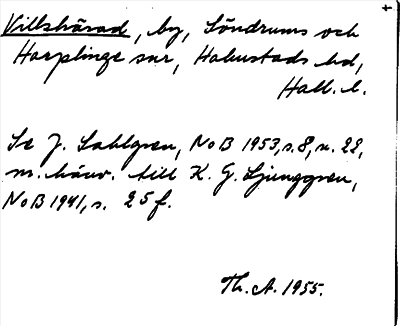 Villshärad, by, Söndrums och
Harplinge snr, Halmstads hd,
Hall. l.
Se J. Sahlgren, NoB 1953, s. 8, n. 22,
m. hänv. till K. G. Ljunggren,
NoB 1941, s. 25 f.
Th. A. 1955.